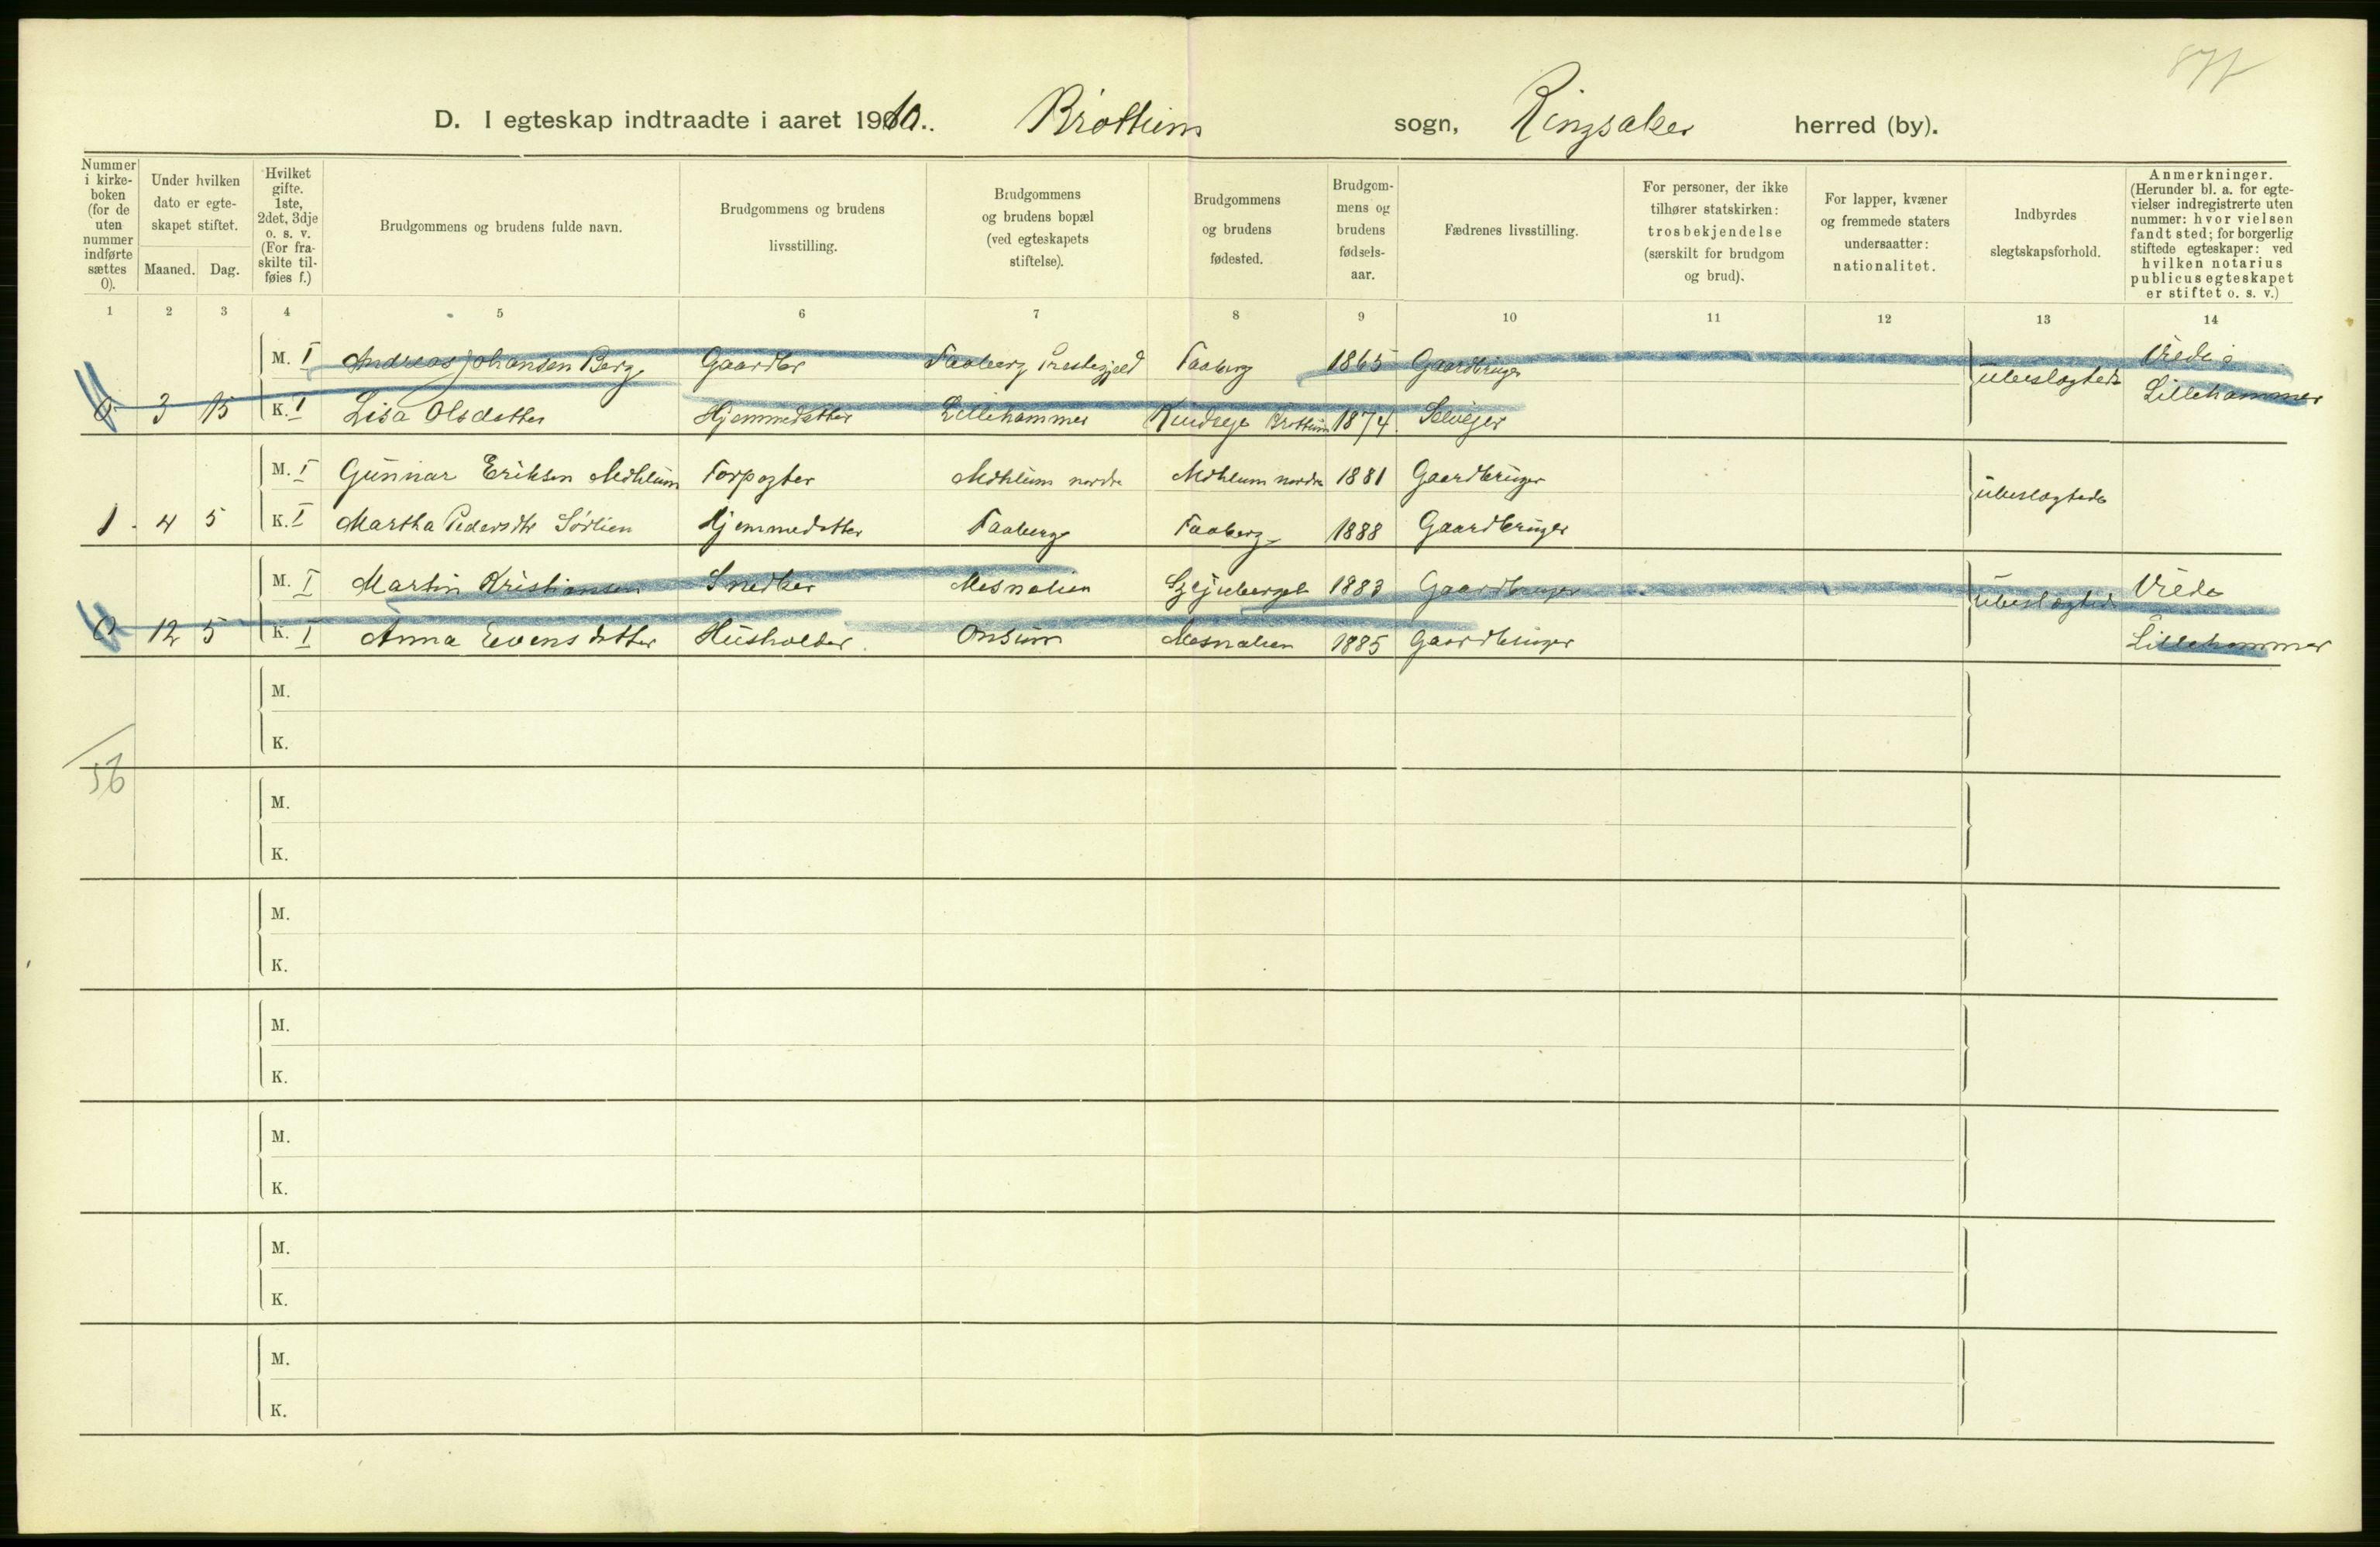 D. I egteskap indtraadte i aaret 1910.. Brøttum sogn, Ringsaker herred (by).
Nummer i kirke-boken (for de uten nummer indførte sættes 0).
Under hvilken dato er egte-skapet stiftet.
Maaned. Dag.
Hvilket gifte. 1ste, 2det, 3dje o. s. v. (For fra-skilte til-føies f.)
Brudgommens og brudens fulde navn.
Brudgommens og brudens livsstilling.
Brudgommens og brudens bopæl (ved egteskapets stiftelse).
Brudgommens og brudens fødested.
Brudgom-mens og brudens fødsels-aar.
Fædrenes livsstilling.
For personer, der ikke tilhører statskirken: trosbekjendelse (særskilt for brudgom og brud).
For lapper, kvæner og fremmede staters undersaatter: nationalitet.
Indbyrdes slegtskapsforhold.
Anmerkninger. (Herunder bl. a. for egte-vielser indregistrerte uten nummer: hvor vielsen fandt sted; for borgerlig stiftede egteskaper: ved hvilken notarius publicus egteskapet er stiftet o. s. v.)
1 2 3 4 5 6 7 8 9 10 11 12 13 14
M. I Andreas Johansen Berg Gaardbr Faaberg Prestegjeld Faaberg 1865 Gaardbruger ubeslægtede Viede i
0 3 15 K. I Lisa Olsdatter Hjemmedatter Lillehammer Brøttum 1874 Selvejer Lillehammer
M. I Gunnar Eriksen Mæhlum Forpagter Mæhlum nordre Mæhlum nordre 1881 Gaardbruger ubeslægtede
1 4 5 K. I Martha Pedersdtr Sørlien Hjemmedatter Faaberg Faaberg 1888 Gaardbruger
M. I Martin Kristiansen Snedker Mesnalien 1883 Gaardbruger ubeslægtede Viede
0 12 5 K. I Anna Evensdatter Husholder Onsum Mesnalien 1885 Gaardbruger Lillehammer
M.
K.
56
M.
K.
M.
K.
M.
K.
M.
K.
M.
K.
M.
K.